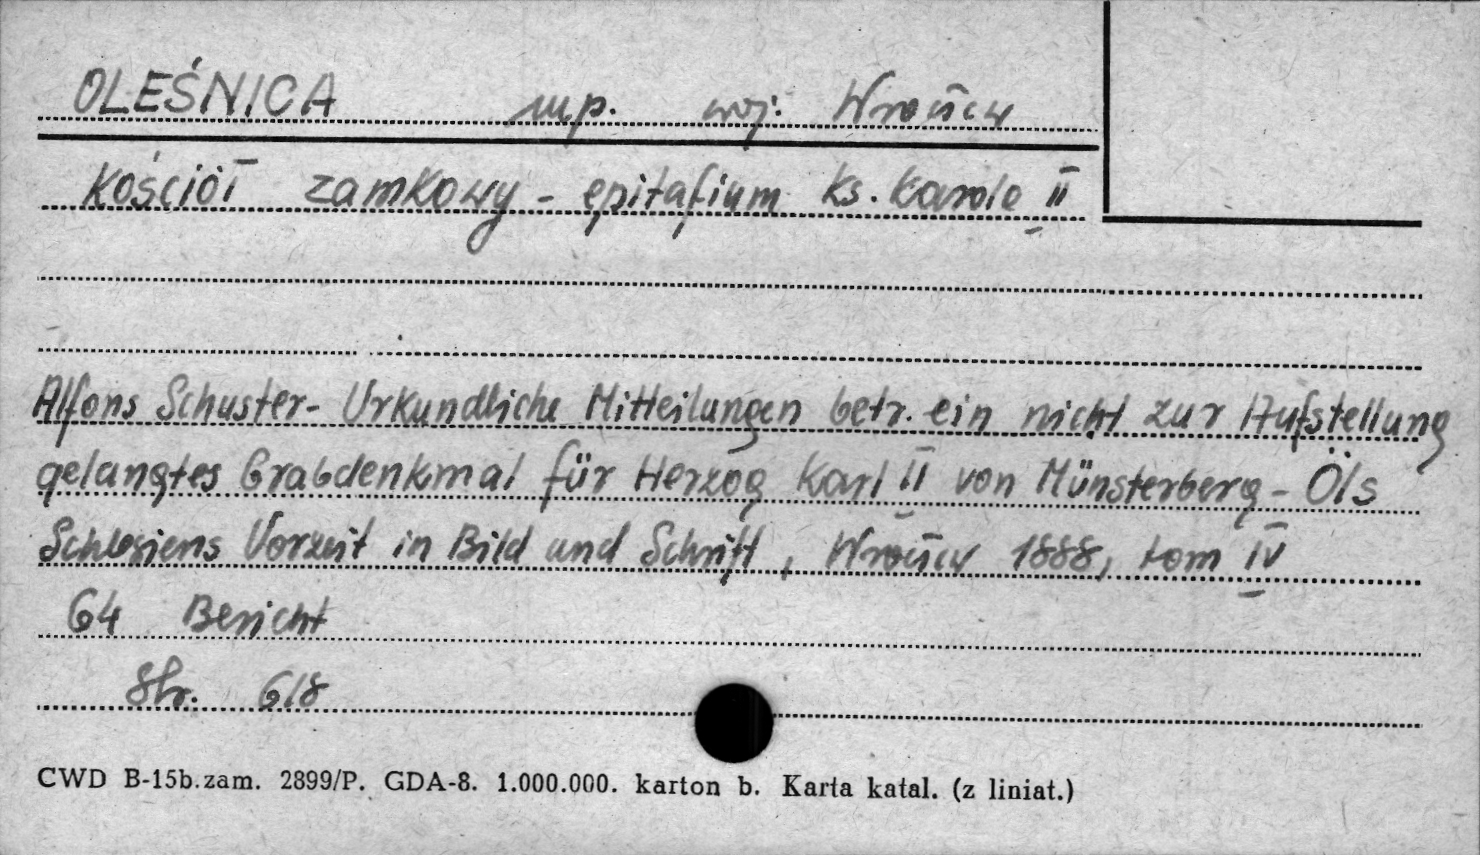 OLEŚNICA mp. woj. Wrocław
Kościół zamkowy - epitafium ks. Karola II
Alfons Schuster- Urkundliche Mitteilungen betr. ein nicht zur Aufstellung
gelangtes Grabdenkmal für Herzog Karl II von Münsterberg - Öls
Schlesiens Vorzeit in Bild und Schrift, Wrocław 1888, tom IV
64 Bericht
Str. 618
CWD B-15b.zam. 2899/P. GDA-8. 1.000.000. karton b. Karta katal. (z liniat.)